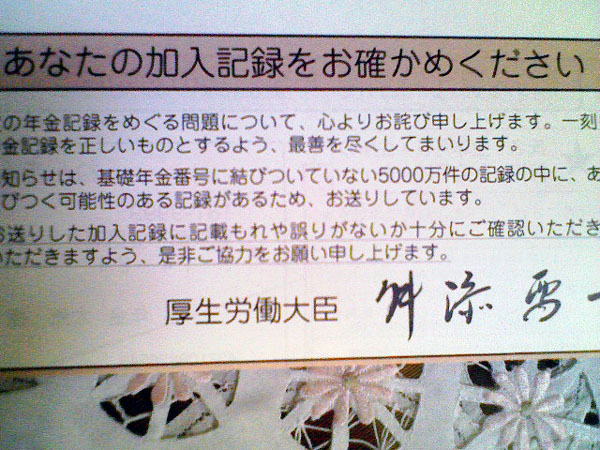 あなたの加入記録をお確かめください
の年金記録をめぐる問題について、心よりお詫び申し上げます。一刻
金記録を正しいものとするよう、最善を尽くしてまいります。
知らせは、基礎年金番号に結びついていない5000万件の記録の中に、あ
びつく可能性のある記録があるため、お送りしています。
お送りした加入記録に記載もれや誤りがないか十分にご確認いただき
いただきますよう、是非ご協力をお願い申し上げます。
厚生労働大臣 舛添要一